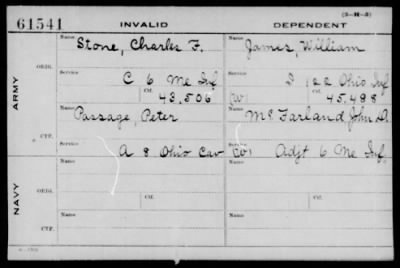 61541 INVALID DEPENDENT (3-H-3)
ARMY
ORIG. Name Stone, Charles F. Name James, William
Service C 6 Me Inf Service I 122 Ohio Inf
Ctf. 43,506 (W) Ctf. 45,498
CTF. Name Passage, Peter Name McFarland, John D.
Service A 8 Ohio Cav (W) Service Adjt 6 Me Inf.
NAVY
ORIG. Name Name
Service Ctf. Service Ctf.
CTF. Name Name